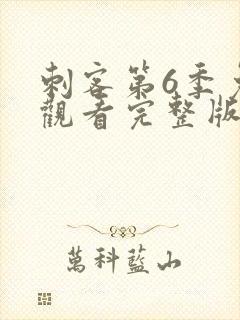 刺客第6季免
觀看完整版
萬科藍山